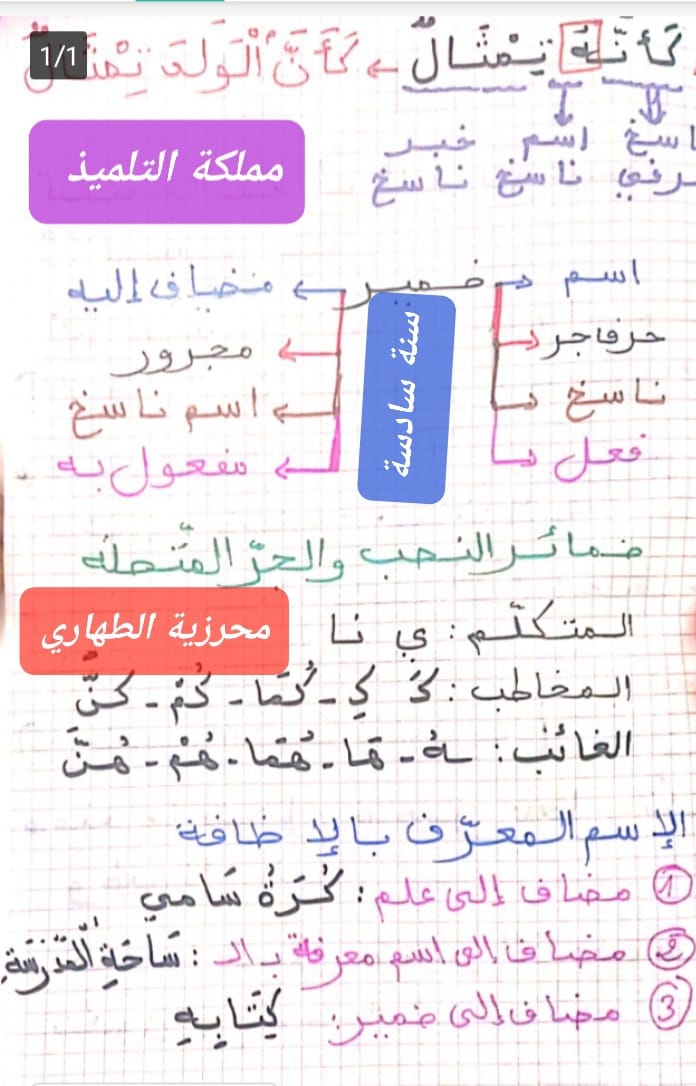 1/1
كَأَنَّهُ تِمْثَالٌ ← كَأَنَّ الْوَلَدَ تِمْثَالٌ
اسم خبر
ناسخ ناسخ
مملكة التلميذ
اسم → ضمير ← مضاف إليه
حرف جر → ← مجرور
ناسخ → ← اسم ناسخ
فعل → ← مفعول به
سنة سادسة
ضمائر النصب والجرّ المتّصلة
المتكلّم : ي نا
محرزية الطهاري
المخاطب : كَ كِ - كُمَا - كُمْ - كُنَّ
الغائب : ـهُ - هَا - هُمَا - هُمْ - هُنَّ
الإسم المعرّف بالإظافة
① مضاف إلى علم : كُرَةُ سَامي
② مضاف إلى اسم معرفة بـ الـ : سَاحَةِ الْمَدْرَسَةِ
③ مضاف إلى ضمير : كِتَابِهِ